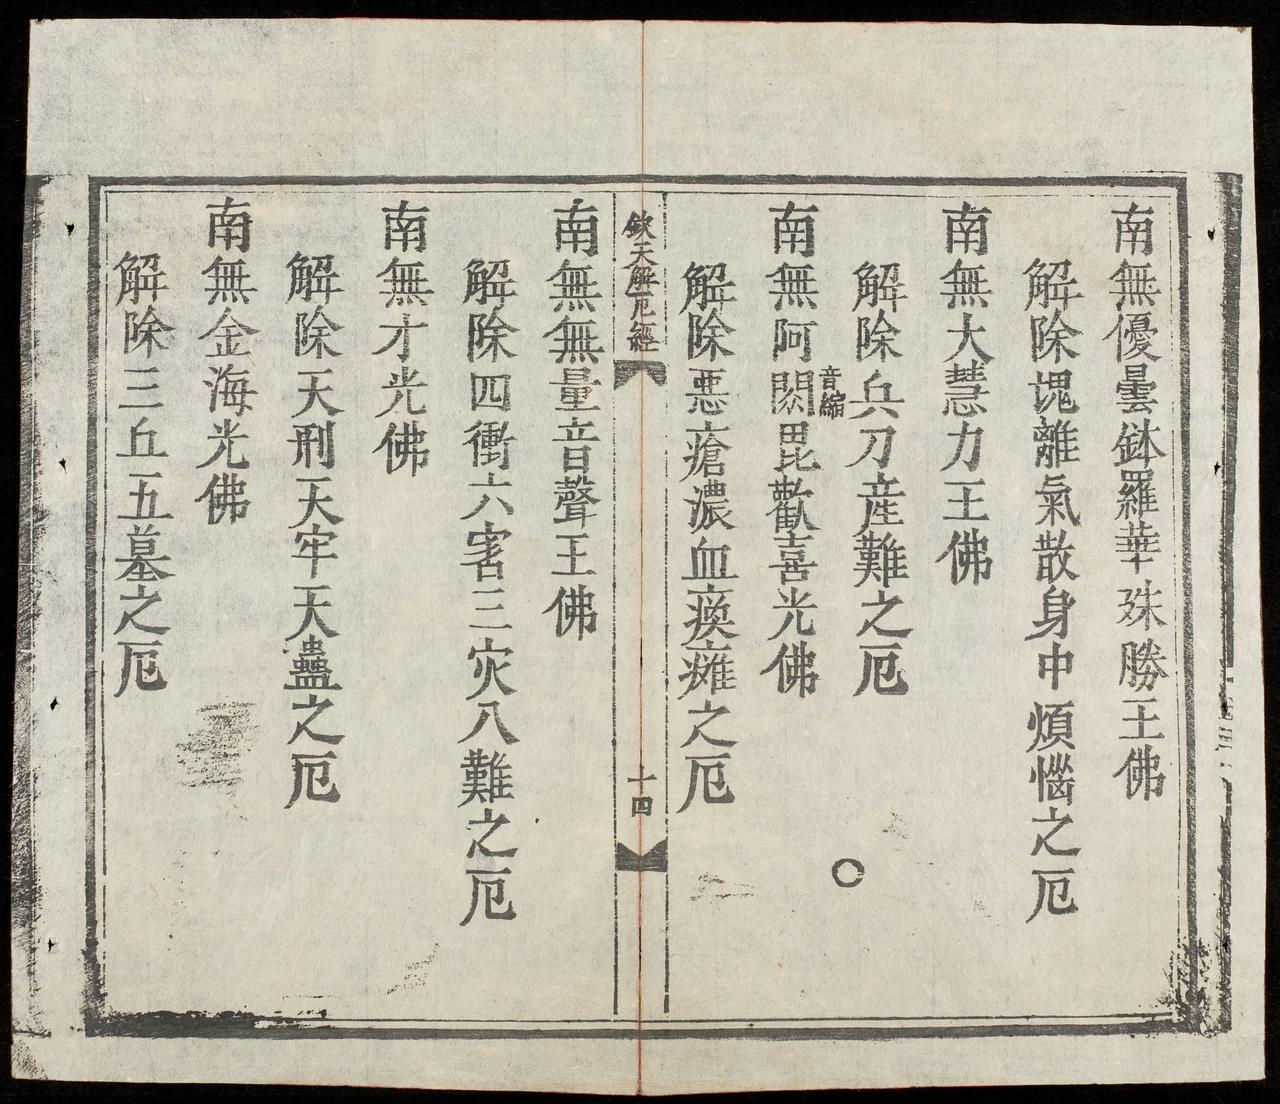 南無優曇鉢羅華殊勝王佛
解除塊離氣散身中煩惱之厄
南無大慧力王佛
解除兵刀産難之厄
南無阿閦音縮毘歡喜光佛
解除惡瘡濃血瘓癱之厄
欽天解厄經
十四
南無無量音聲王佛
解除四衝六害三灾八難之厄
南無才光佛
解除天刑天牢天蠱之厄
南無金海光佛
解除三丘五墓之厄